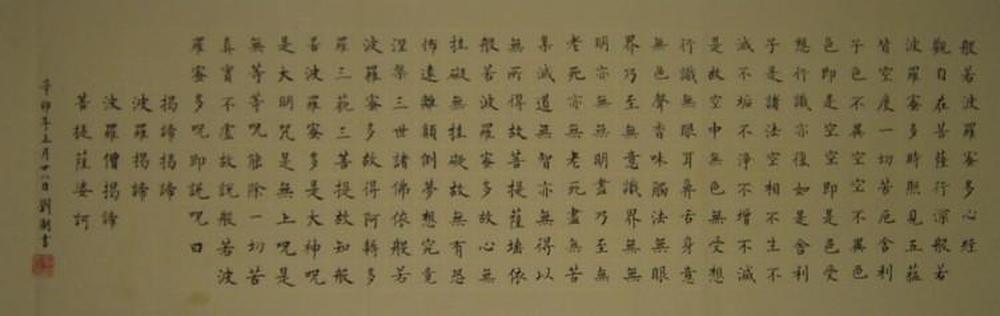 般若波羅蜜多心經
觀自在菩薩行深般若
波羅蜜多時照見五蘊
皆空度一切苦厄舍利
子色不異空空不異色
色即是空空即是色受
想行識亦復如是舍利
子是諸法空相不生不
滅不垢不淨不增不減
是故空中無色無受想
行識無眼耳鼻舌身意
無色聲香味觸法無眼
界乃至無意識界無無
明亦無無明盡乃至無
老死亦無老死盡無苦
集滅道無智亦無得以
無所得故菩提薩埵依
般若波羅蜜多故心無
挂礙無挂礙故無有恐
怖遠離顛倒夢想究竟
涅槃三世諸佛依般若
波羅蜜多故得阿耨多
羅三藐三菩提故知般
若波羅蜜多是大神呪
是大明咒是無上呪是
無等等呪能除一切苦
真實不虛故說般若波
羅蜜多呪即說呪曰
揭諦揭諦
波羅揭諦
波羅僧揭諦
菩提薩婆訶
辛卯年五月廿八日劉書